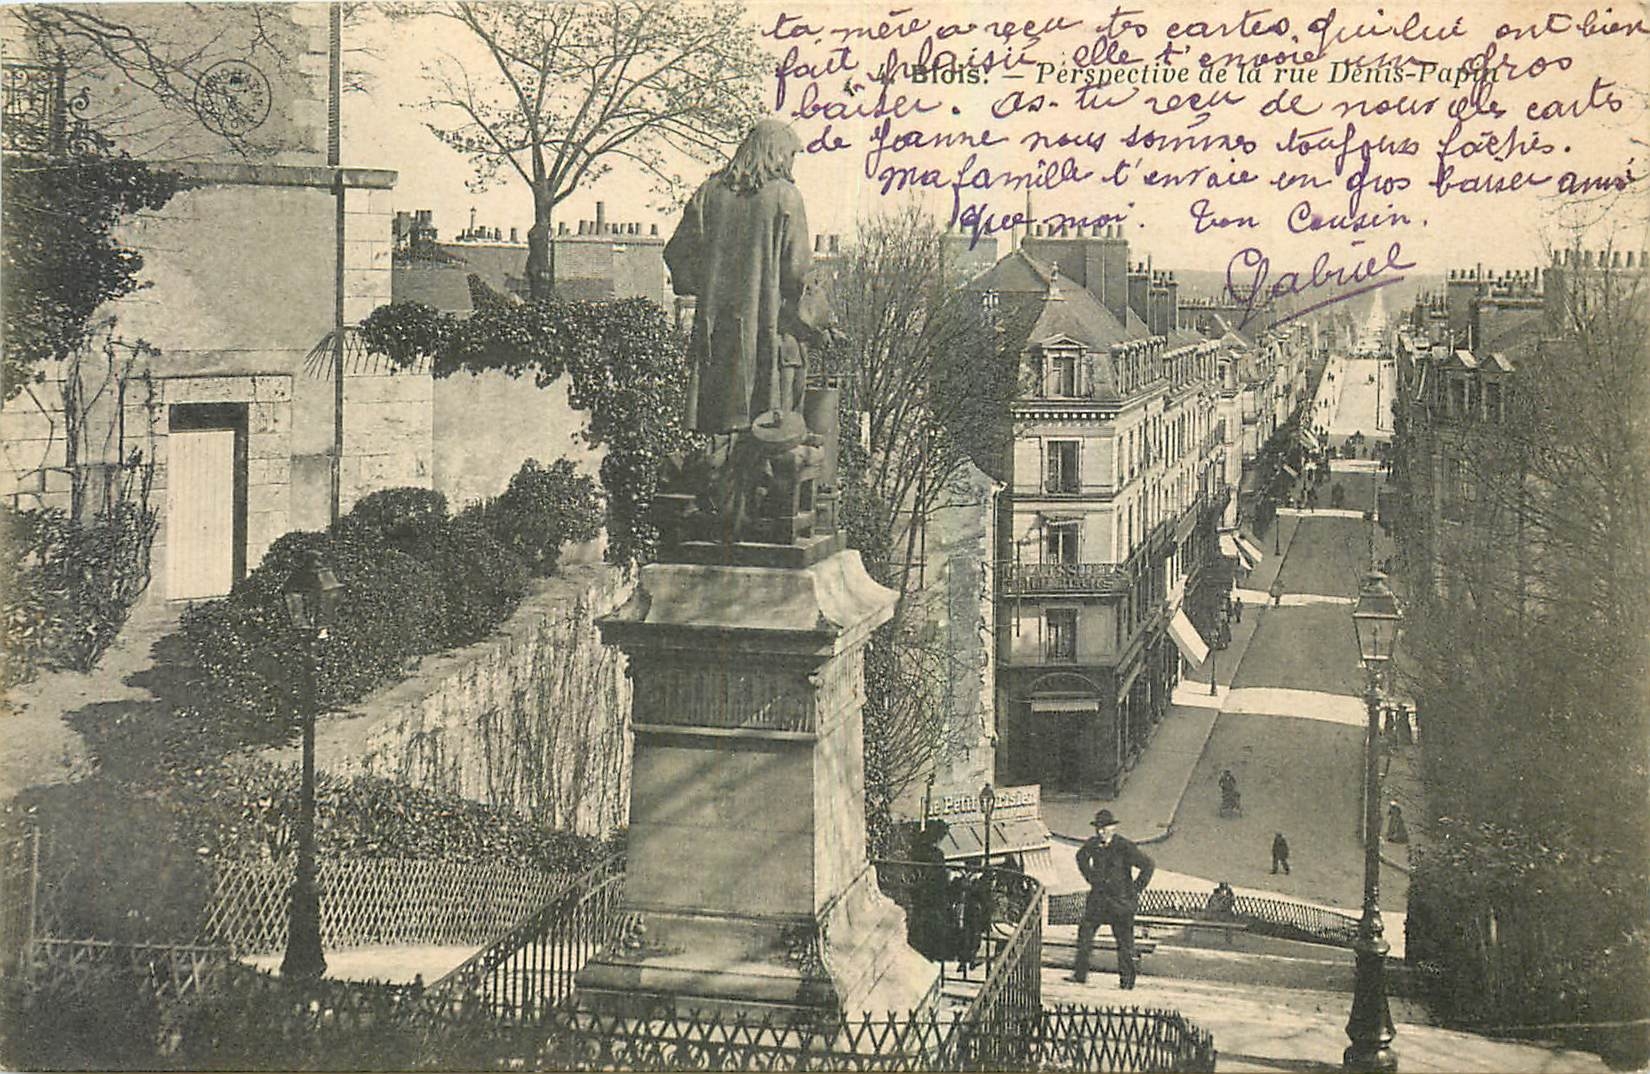 ta mère a reçu tes cartes, qui lui ont bien
fait plaisir, elle t'envoie un gros
4. Blois. — Perspective de la rue Denis-Papin
baiser. As-tu reçu de nouvelles cartes
de Jeanne nous sommes toujours fâchés.
ma famille t'envoie un gros baiser ainsi
que moi. Ton Cousin.
Gabriel
Le Petit Parisien